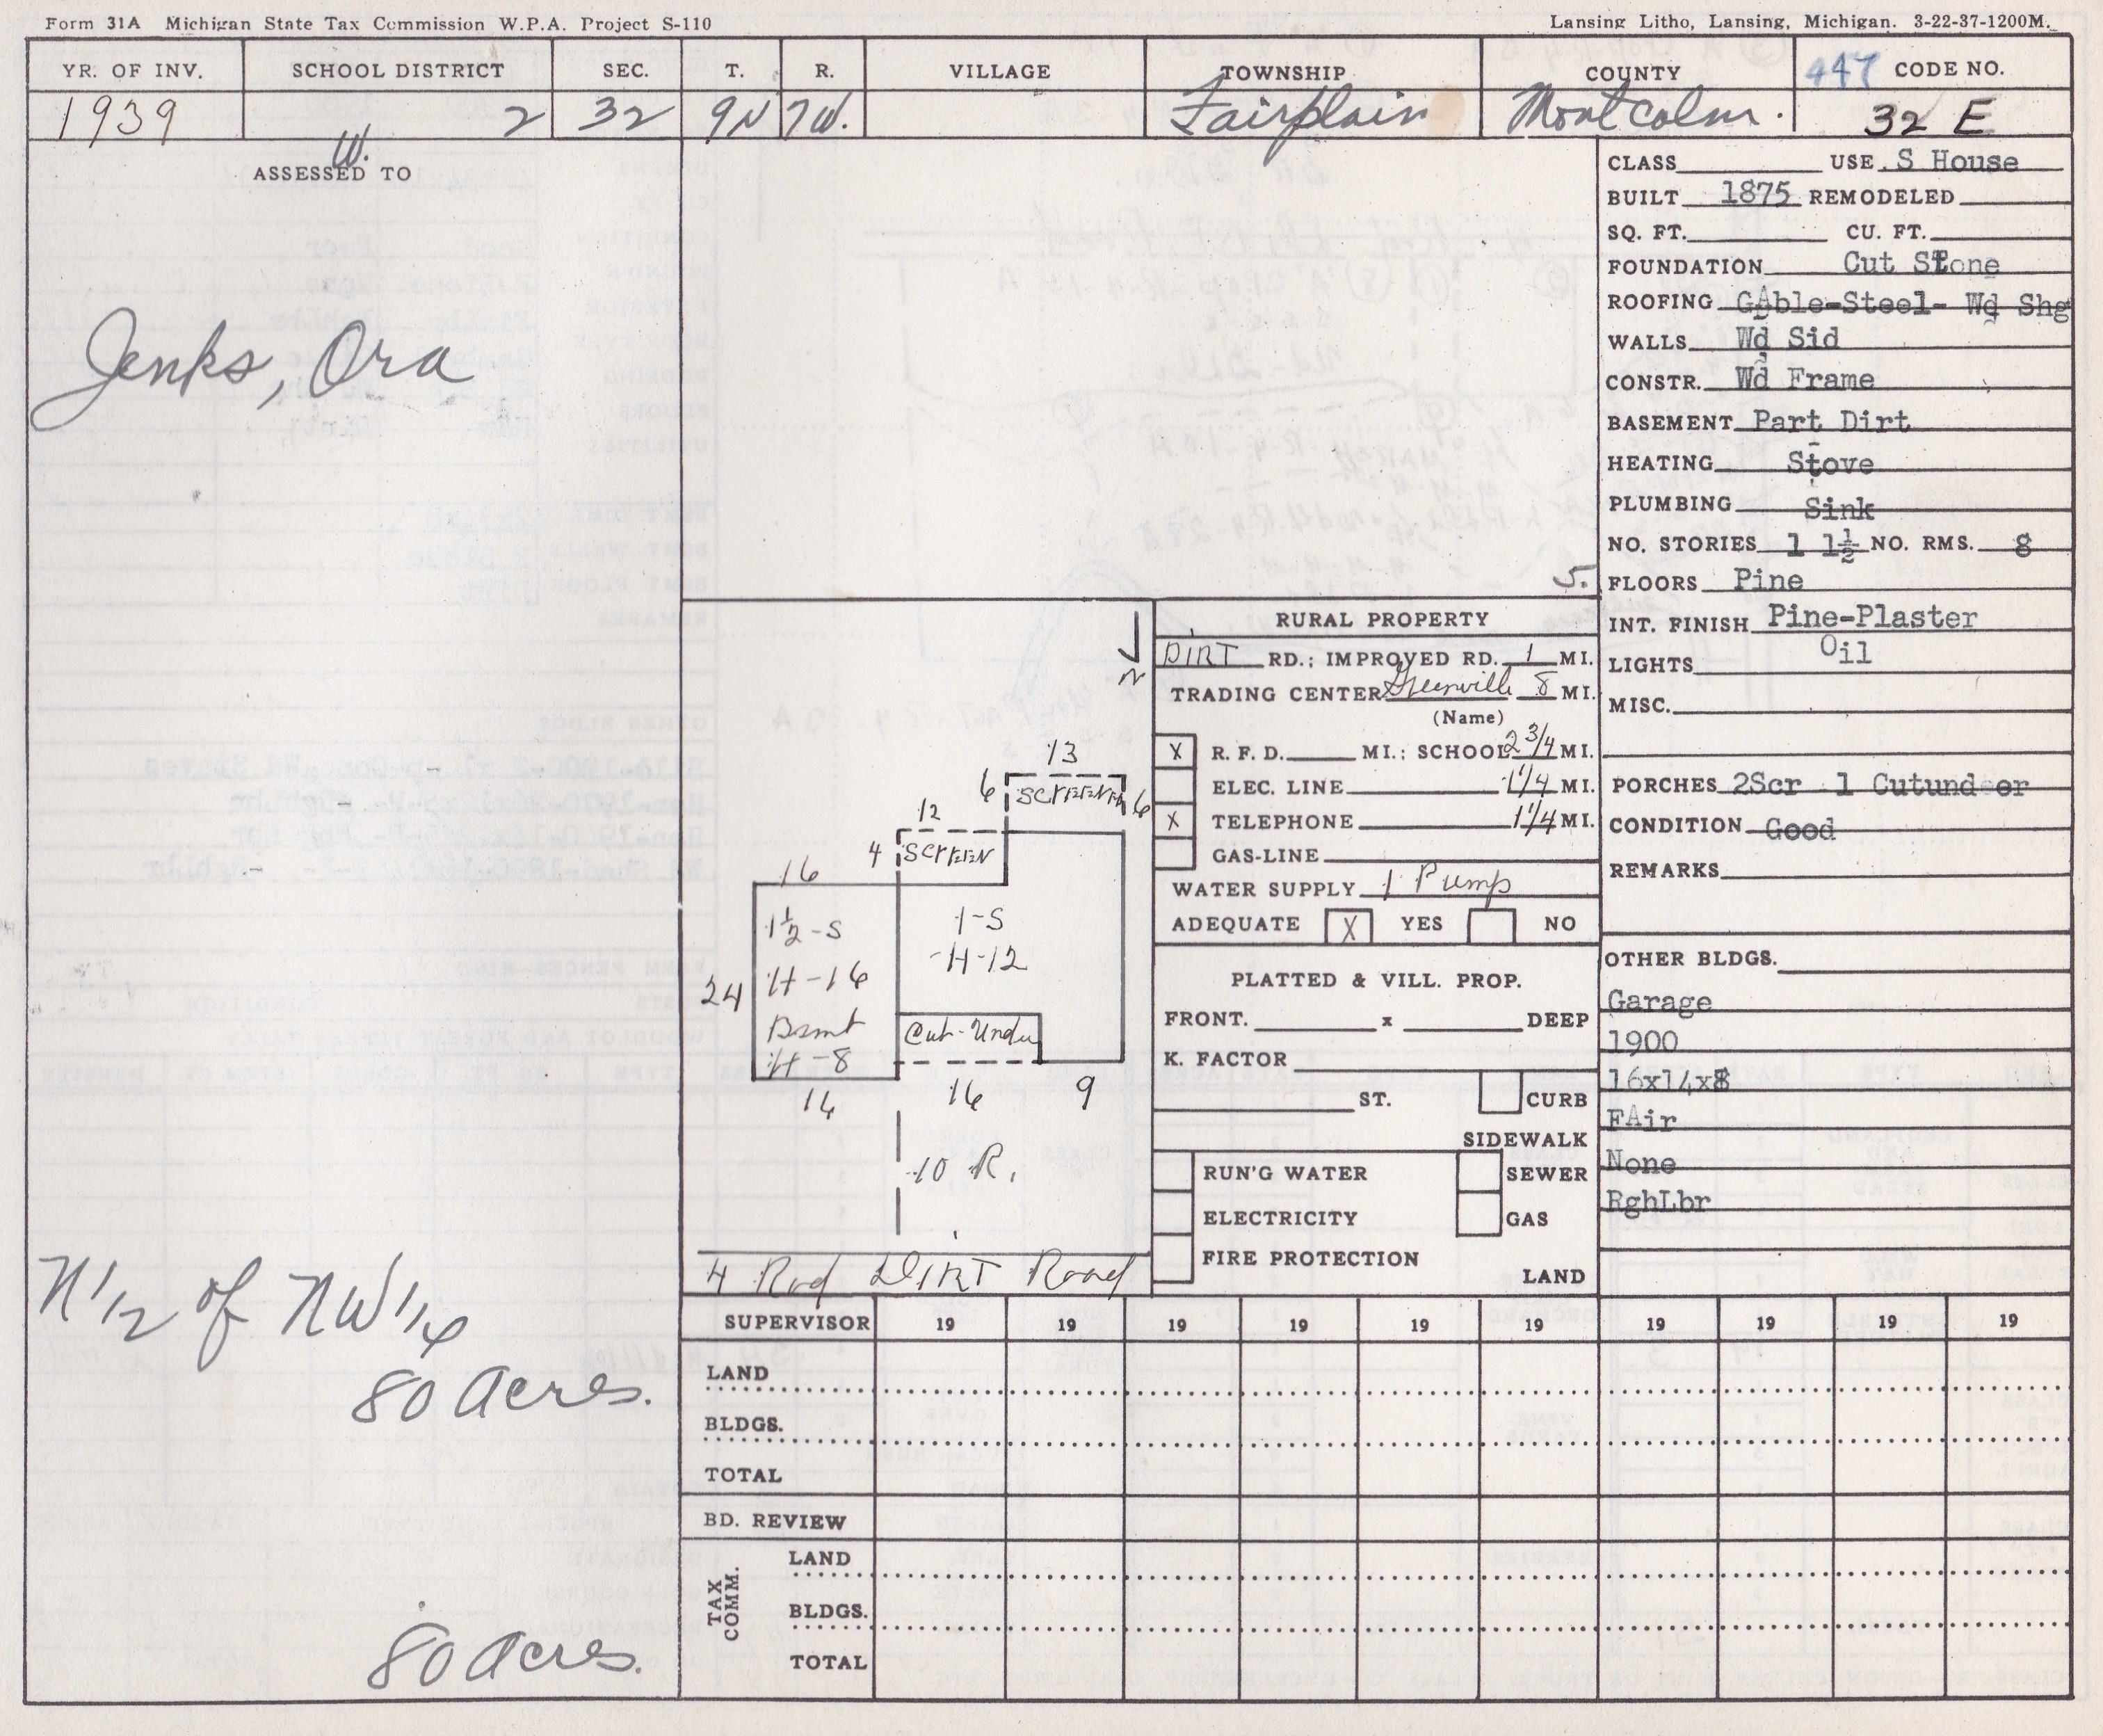 Form 31A Michigan State Tax Commission W.P.A. Project S-110
Lansing Litho, Lansing, Michigan. 3-22-37-1200M.
YR. OF INV. SCHOOL DISTRICT SEC. T. R. VILLAGE TOWNSHIP COUNTY 447 CODE NO.
1939 2 32 9N 7W. Fairplain Montcalm. 32 E
W.
ASSESSED TO
Jenks, Ora
N 1/2 of NW 1/4
80 acres.
80 acres.
5.
N
13
6 SCREENED 6
12
4 SCREEN
16
1½-S
H-16
Bsmt
H-8
24
1-S
H-12
Cut-Under
16
9
10 R.
4 Rod DIRT Road
RURAL PROPERTY
DIRT RD.; IMPROVED RD. 1 MI.
TRADING CENTER Greenville 8 MI.
(Name)
X R. F. D. MI.; SCHOOL 2 3/4 MI.
ELEC. LINE 1 1/4 MI.
X TELEPHONE 1 1/4 MI.
GAS-LINE
WATER SUPPLY 1 Pump
ADEQUATE X YES NO
PLATTED & VILL. PROP.
FRONT. x DEEP
K. FACTOR
ST. CURB
SIDEWALK
RUN'G WATER SEWER
ELECTRICITY GAS
FIRE PROTECTION
LAND
CLASS USE. S House
BUILT 1875 REMODELED
SQ. FT. CU. FT.
FOUNDATION Cut Stone
ROOFING GAble-Steel- Wd Shg
WALLS Wd Sid
CONSTR. Wd Frame
BASEMENT Part Dirt
HEATING Stove
PLUMBING Sink
NO. STORIES 1 1½ NO. RMS. 8
FLOORS Pine
INT. FINISH Pine-Plaster
LIGHTS Oil
MISC.
PORCHES 2Scr 1 Cutundeer
CONDITION Good
REMARKS
OTHER BLDGS.
Garage
1900
16x14x8
FAir
None
RghLbr
SUPERVISOR 19 19 19 19 19 19 19 19 19 19
LAND
BLDGS.
TOTAL
BD. REVIEW
TAX COMM.
LAND
BLDGS.
TOTAL